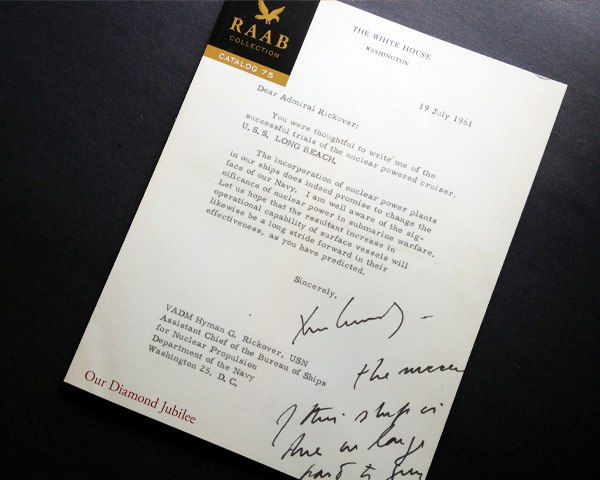 RAAB
COLLECTION
CATALOG 75
THE WHITE HOUSE
WASHINGTON
19 July 1961
Dear Admiral Rickover:
You were thoughtful to write me of the
successful trials of the nuclear powered cruiser,
U. S. S. LONG BEACH.
The incorporation of nuclear power plants
in our ships does indeed promise to change the
face of our Navy. I am well aware of the sig-
nificance of nuclear power in submarine warfare.
Let us hope that the resultant increase in
operational capability of surface vessels will
likewise be a long stride forward in their
effectiveness, as you have predicted.
Sincerely,
VADM Hyman G. Rickover, USN
Assistant Chief of the Bureau of Ships
for Nuclear Propulsion
Department of the Navy
Washington 25, D. C.
the
of this ship is
due in large
part to
Our Diamond Jubilee